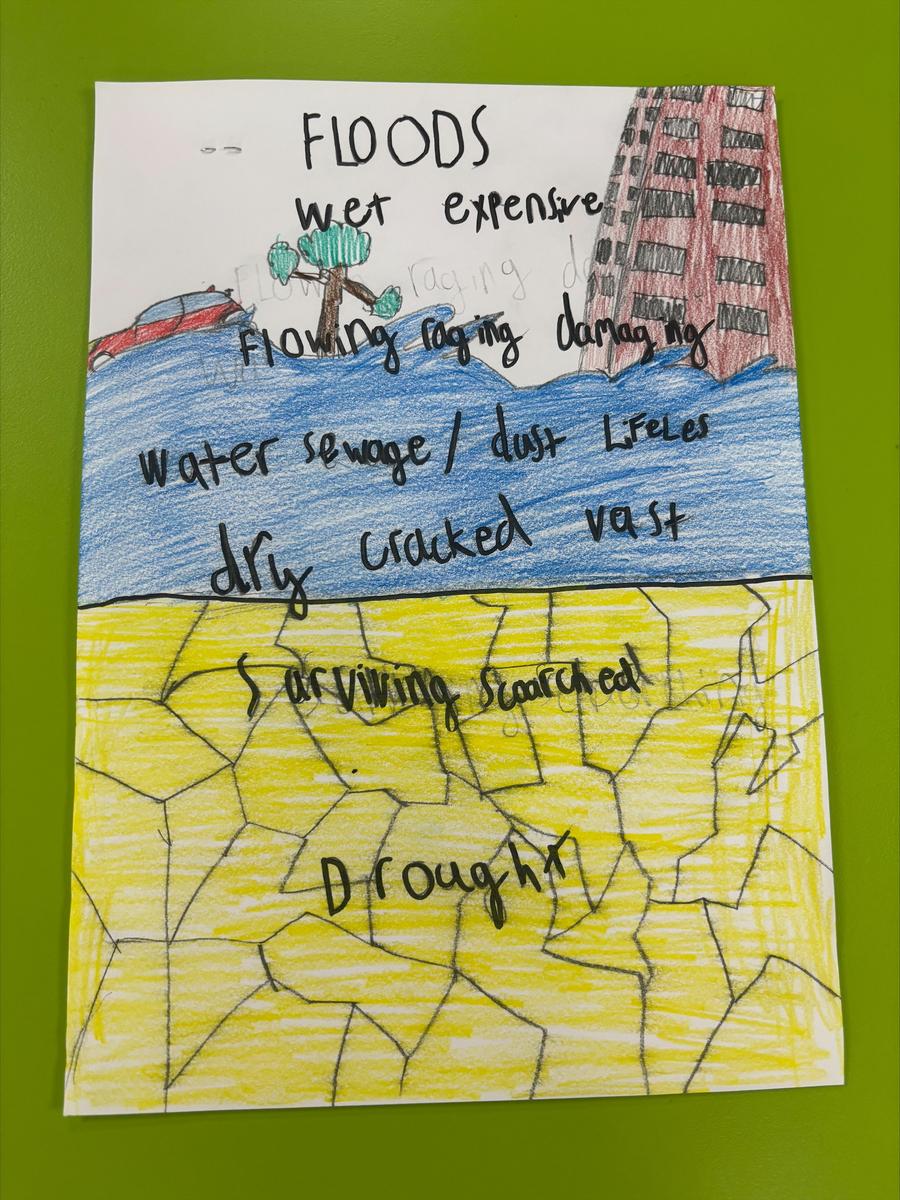 FLOODS
wet expensive
Flowing raging damaging
Water sewage / dust LiFeLes
dry cracked vast
Surviving scoarched
Drought